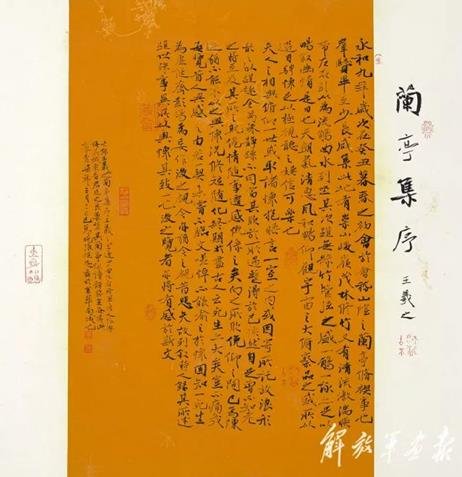 蘭亭集序
王羲之
永和九年歲次在癸丑暮春之初會于會稽山陰之蘭亭脩禊事也
羣賢畢至少長咸集此地有崇山峻領茂林脩竹又有清流激湍暎
帶左右引為流觴曲水列坐其次雖無絲竹管弦之盛一觴一詠亦足以
暢敘幽情是日也天朗氣清惠風和暢仰觀宇宙之大俯察品類之盛所以
遊目騁懷足以極視聽之娛信可樂也
夫人之相與俯仰一世或取諸懷抱悟言一室之內或因寄所託放浪形
趣舍萬殊靜躁不同當其欣於所遇暫得於己快然自足不知老
之將至及其所之既惓情隨事遷感慨係之矣向之所欣俛仰之間已為陳
迹猶不能不以之興懷況脩短隨化終期於盡古人云死生亦大矣豈不痛哉
每覽昔人興感之由若合一契未嘗不臨文嗟悼不能喻之於懷固知一死生
為虛誕齊彭殤為妄作後之視今亦猶今之視昔悲夫故列敘時人錄其所述
雖世殊事異所以興懷其致一也後之覽者亦將有感於斯文
解放军画报